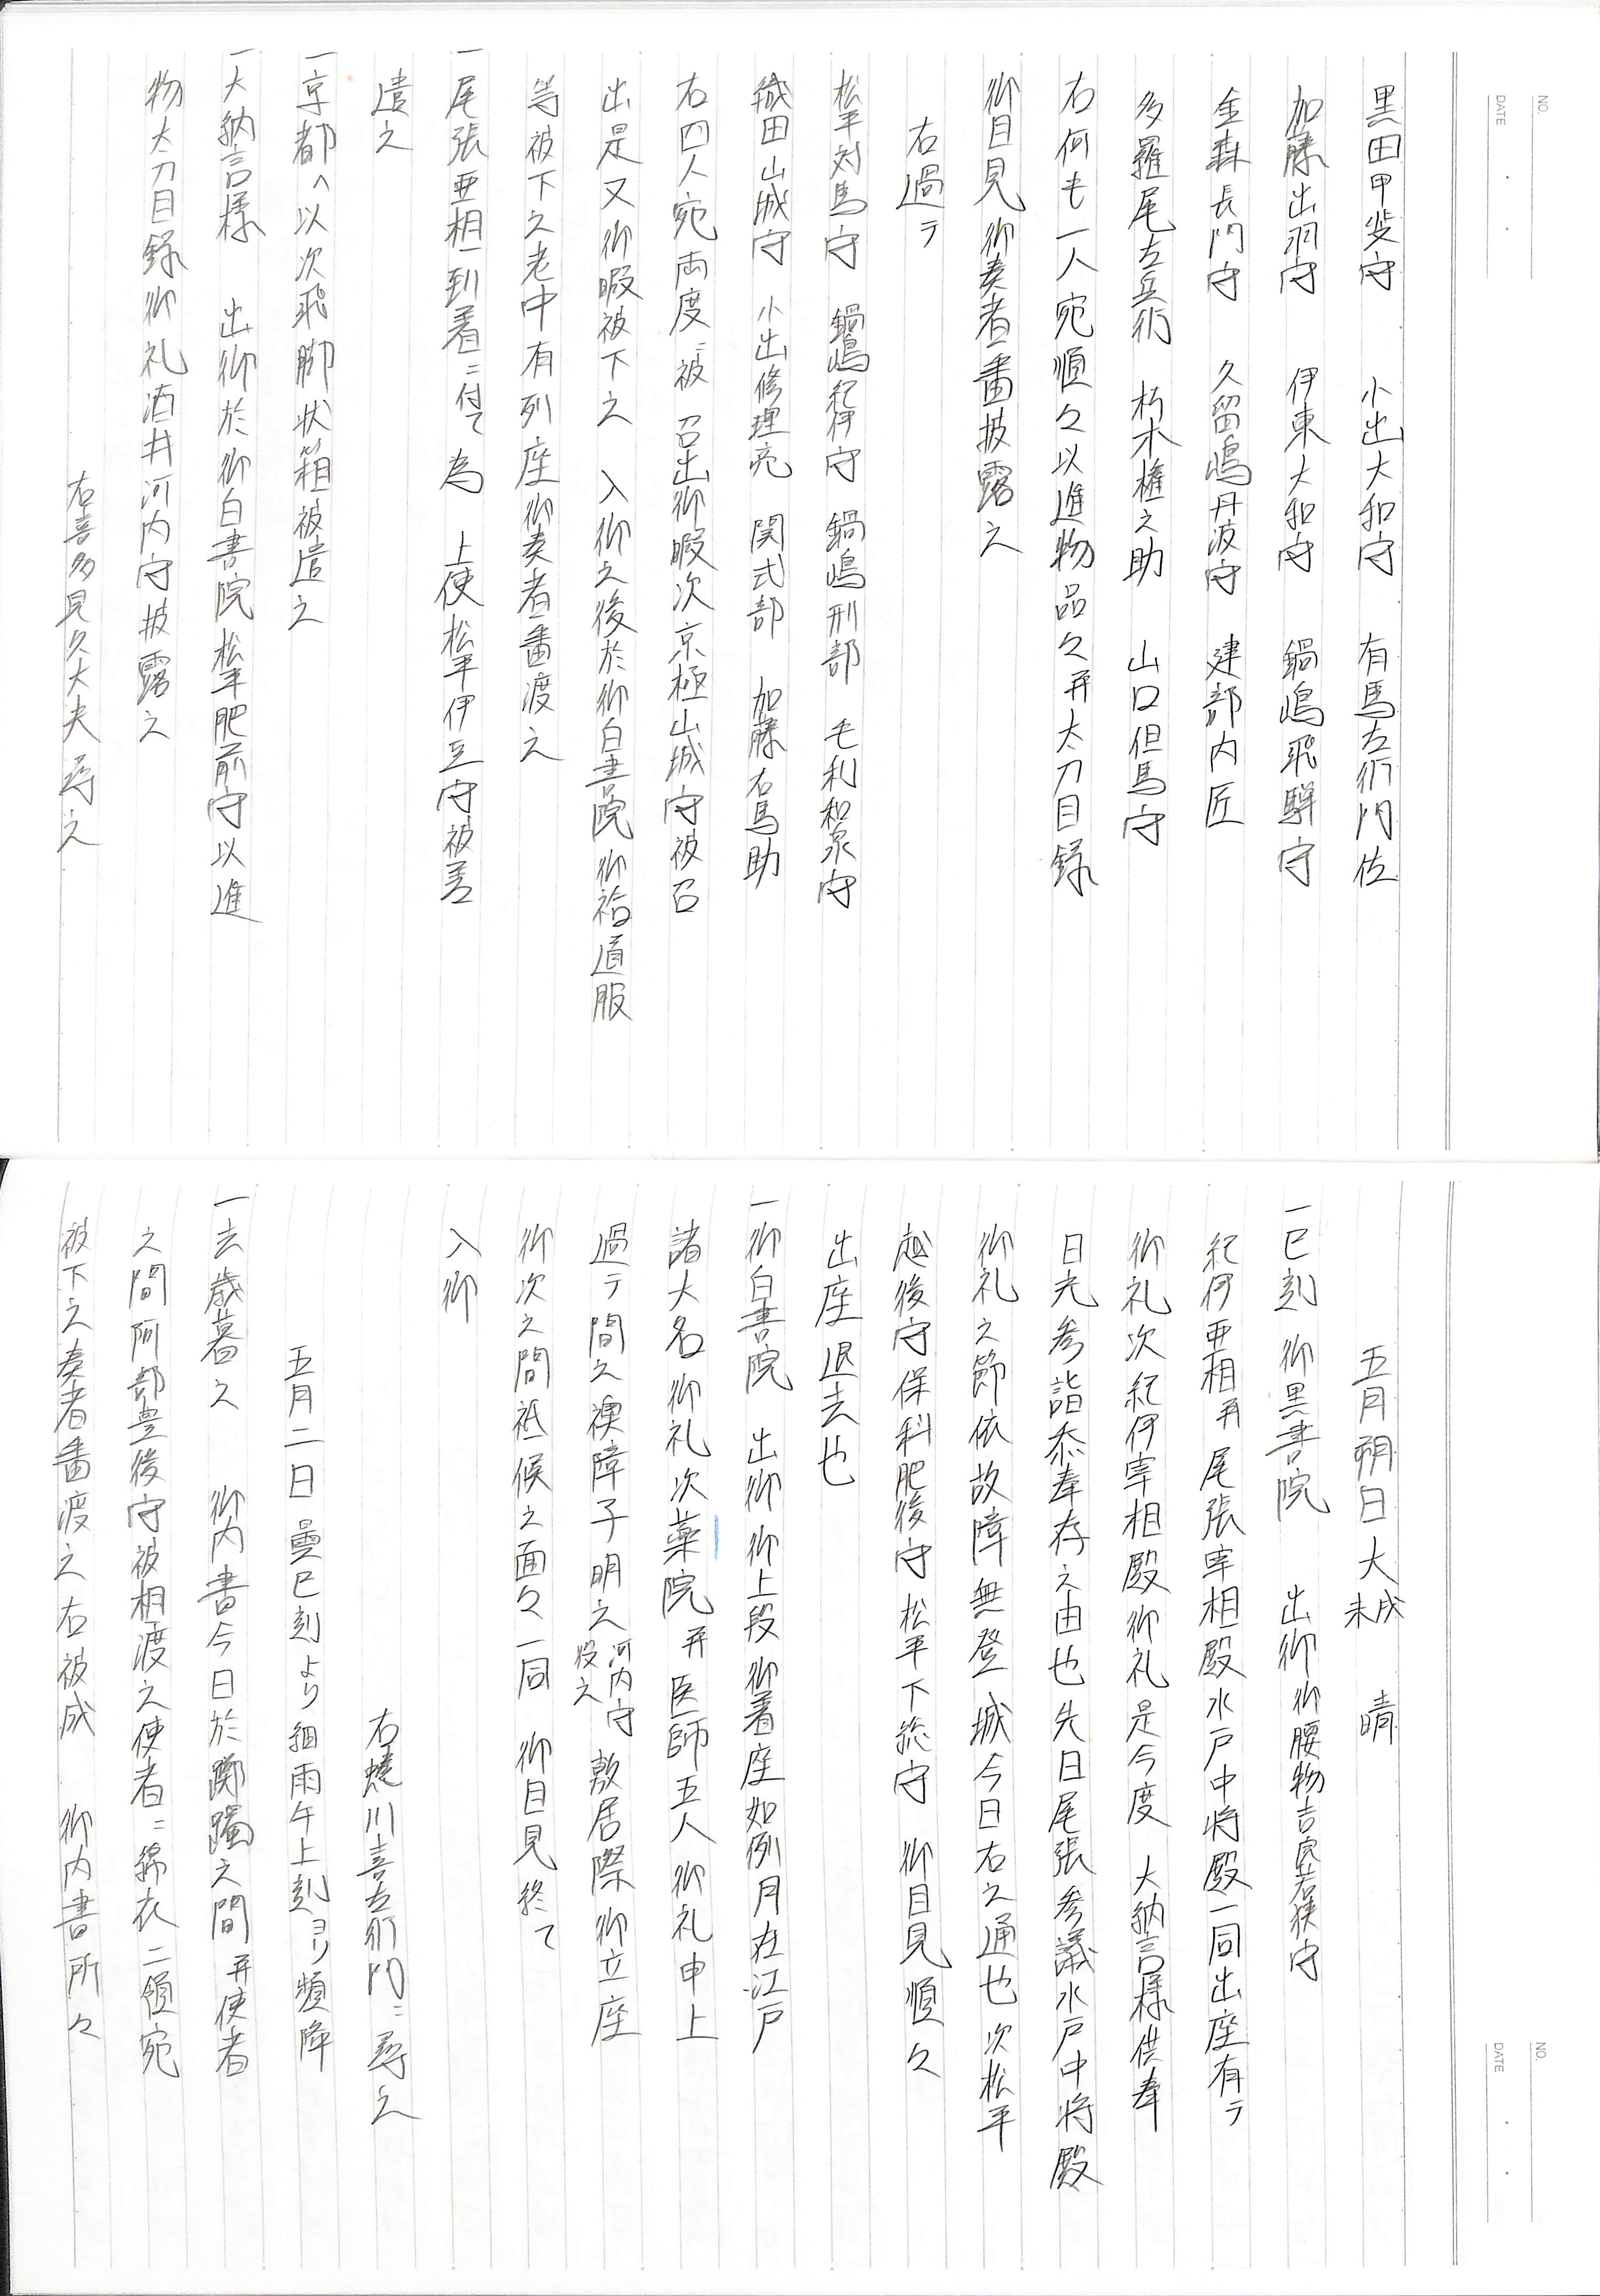 NO.
DATE
黒田甲斐守　小出大和守　有馬左衛門佐
加藤出羽守　伊東大和守　鍋嶋飛騨守
金森長門守　久留嶋丹波守　建部内匠
多羅尾左兵衛　朽木権之助　山口但馬守
右何も一人宛順々以進物品々并太刀目録
御目見御奏者番披露之
右過テ
松平対馬守　鍋嶋紀伊守　鍋嶋刑部　毛利和泉守
織田山城守　小出修理亮　関式部　加藤右馬助
右四人宛両度ニ被　召出御暇次京極山城守被召
出是又御暇被下之　入御之後於御白書院御袷道服
等被下之老中有列座御奏者番渡之
一尾張亜相到着ニ付て為　上使松平伊豆守被差
遣之
一京都へ以次飛脚状箱被遣之
一大納言様　出御於御白書院松平肥前守以進
物太刀目録御礼酒井河内守披露之
右喜多見久大夫尋之
NO.
DATE
五月朔日大　晴
一巳刻　御黒書院　出御御腰物吉良若狭守
紀伊亜相并尾張宰相殿水戸中将殿一同出座有テ
御礼次紀伊宰相殿御礼是今度　大納言様供奉
日光参詣忝奉存之由也先日尾張参議水戸中将殿
御礼之節依故障無登　城今日右之通也次松平
越後守保科肥後守松平下総守　御目見順々
出座退去也
一御白書院　出御御上段御着座如例月在江戸
諸大名御礼次薬院并医師五人御礼申上
過テ間之襖障子明之河内守役之敷居際御立座
御次之間祗候之面々一同　御目見終て
入御
右蜷川喜左衛門ニ尋之
五月二日曇巳刻より細雨午上刻ヨリ頻降
一去歳暮之　御内書今日於躑躅之間并使者
之間阿部豊後守被相渡之使者ニ綿衣二領宛
被下之奏者番渡之右被成　御内書所々